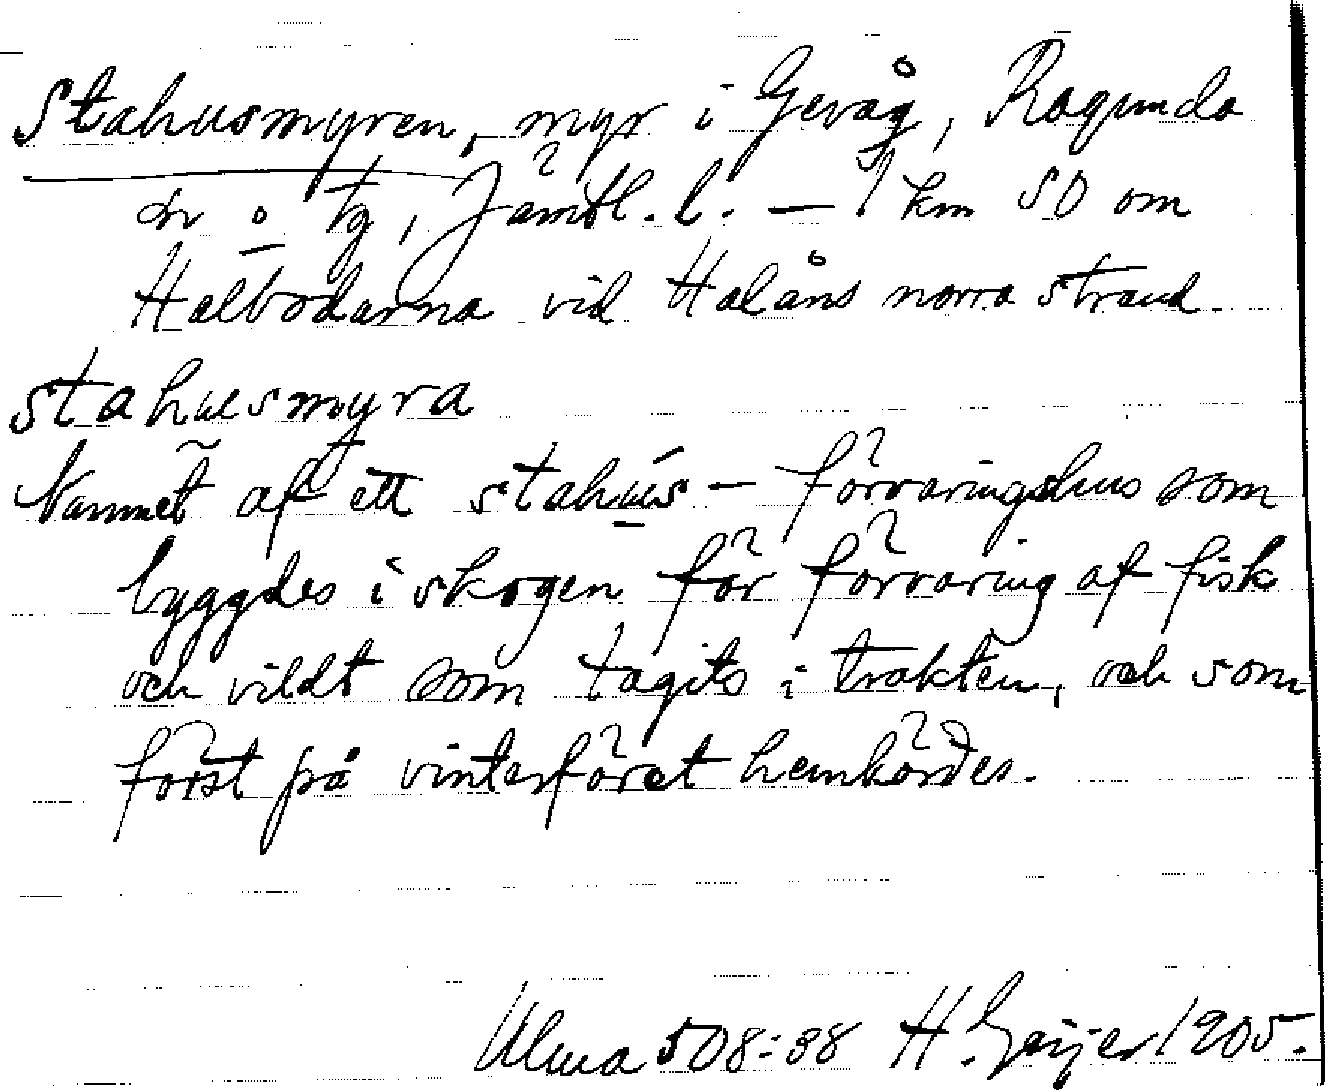 Stahusmyren, myr i Gevåg, Ragunda
sn o. tg, Jämtl. l. — 1 km SO om
Halbodarna vid Halåns norra strand.
stahusmyra
Namnet af ett stahús – förvaringshus som
byggdes i skogen för förvaring af fisk
och vildt som tagits i trakten, och som
först på vinterföret hemkördes.
Ulma 508:38 H. Geijer 1905.